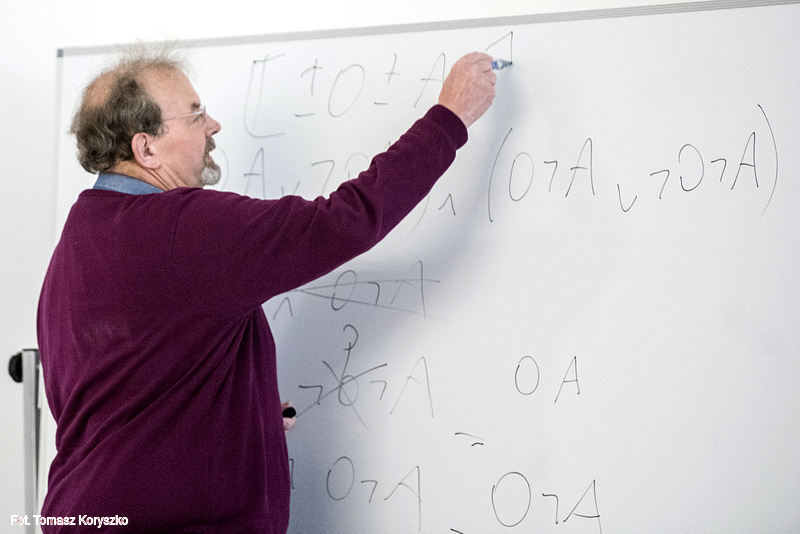 [ ± O ± A
A ∨ ¬O ) ∧ (O¬A ∨ ¬O¬A)
∧ O¬A
P
¬O¬A OA
=
O¬A O¬A
Fot. Tomasz Koryszko